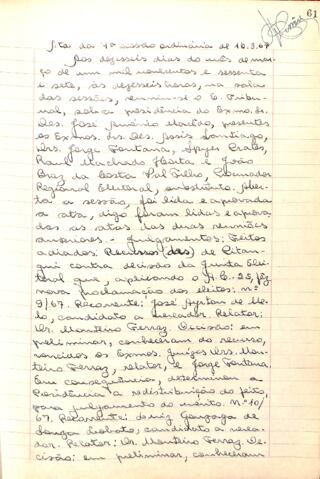 61
Ata da 4ª sessão ordinária de 16.3.67
Aos dezesseis dias do mês de mar-
ço de um mil novecentos e sessenta
e sete, às dezesseis horas, na sala
das sessões, reuniu-se o E. Tribu-
nal, sob a presidência do Exmo. Sr.
Des. José Américo Macêdo, presentes
os Exmos. Srs. Des. Assis Santiago,
Drs. Jorge Fontana, Prates,
Raul Machado Horta e João
Braz da Costa Val Filho, Procurador
Regional Eleitoral, substituto. Aber-
ta a sessão, foi lida e aprovada
a ata, digo foram lidas e aprova-
das as atas das duas reuniões
anteriores. - Julgamentos: Feitos
adiados: Recursos (das) de Pitan-
gui contra decisão da Junta Elei-
toral que, aplicando o A.C.-25, fez
nova proclamação dos eleitos: n.º
9/67. Recorrente: José Ayrton de Me-
lo, candidato a vereador. Relator:
Dr. Monteiro Ferraz. Decisão: em
preliminar, conheceram do recurso,
vencidos os Exmos. Juízes Drs. Mon-
teiro Ferraz, relator, e Jorge Fontana.
Em consequência, determinou a
Presidência a redistribuição do feito,
para julgamento do mérito. N.º 10/
67. Recorrente: Luiz Gonzaga de
Souza Lobato, candidato a verea-
dor. Relator: Dr. Monteiro Ferraz. De-
cisão: em preliminar, conheceram